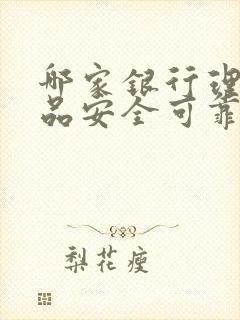 哪家银行理
品安全可靠
梨花瘦